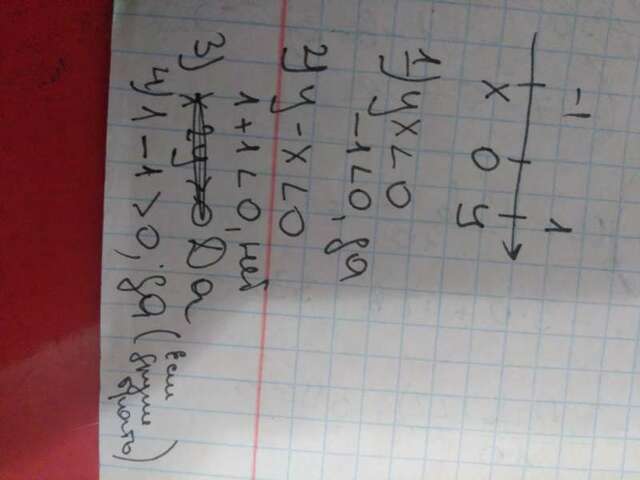 -1 1
x 0 y
1) yx<0
-1<0, да
2) y-x<0
1+1<0, нет
3) Да
4) 1-1>0, да (если
другие
брать)